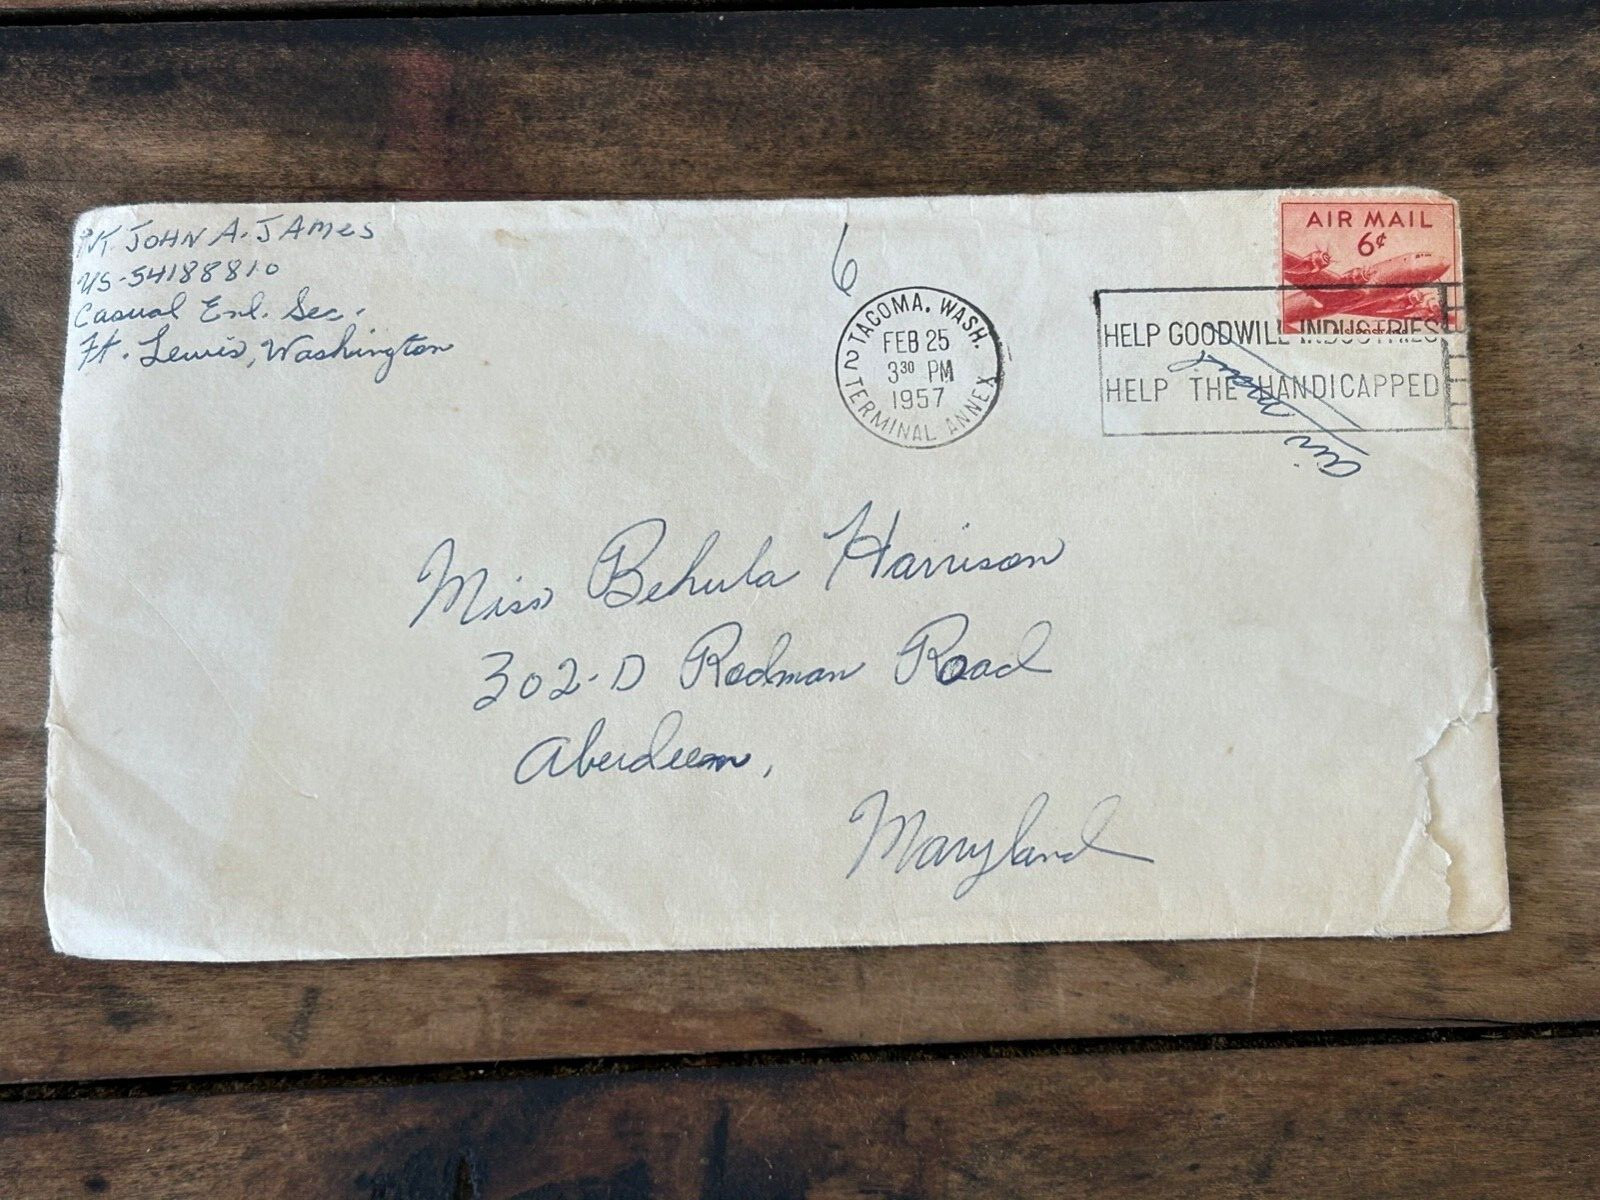 Pvt. JOHN A. JAMES
US-54188810
Casual Enl. Sec.
Ft. Lewis, Washington
6
TACOMA, WASH.
FEB 25
3 30 PM
1957
2 TERMINAL ANNEX
AIR MAIL
6¢
HELP GOODWILL INDUSTRIES
HELP THE HANDICAPPED
air mail
Miss Behula Harrison
302-D Rodman Road
Aberdeen,
Maryland